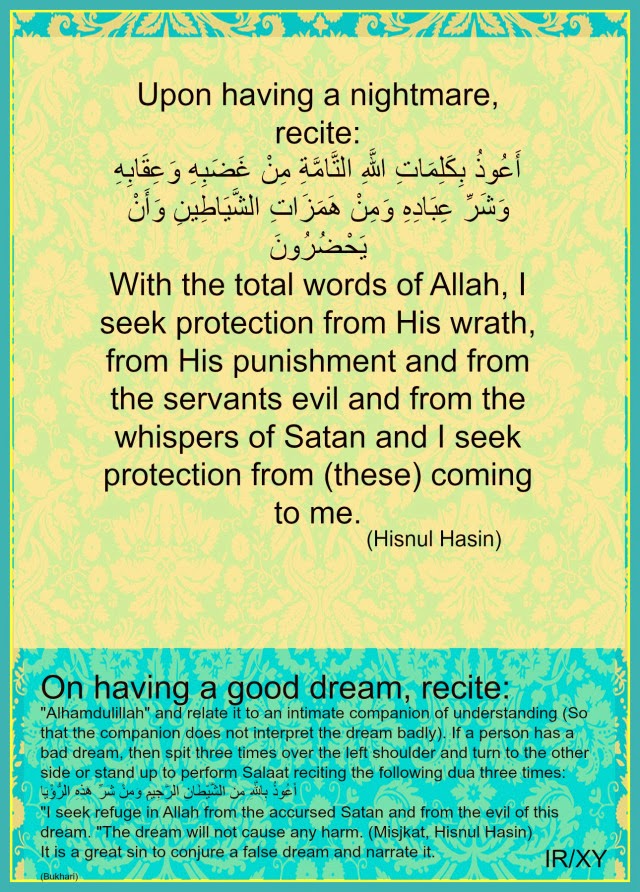 Upon having a nightmare,
recite:
أَعُوذُ بِكَلِمَاتِ اللَّهِ التَّامَّةِ مِنْ غَضَبِهِ وَعِقَابِهِ
وَشَرِّ عِبَادِهِ وَمِنْ هَمَزَاتِ الشَّيَاطِينِ وَأَنْ
يَحْضُرُونَ
With the total words of Allah, I
seek protection from His wrath,
from His punishment and from
the servants evil and from the
whispers of Satan and I seek
protection from (these) coming
to me.
(Hisnul Hasin)
On having a good dream, recite:
"Alhamdulillah" and relate it to an intimate companion of understanding (So
that the companion does not interpret the dream badly). If a person has a
bad dream, then spit three times over the left shoulder and turn to the other
side or stand up to perform Salaat reciting the following dua three times:
أعوذُ باللهِ مِنَ الشَّيْطَانِ الرَّجِيمِ وَمِنْ شَرِّ هَذِهِ الرُّؤْيَا
"I seek refuge in Allah from the accursed Satan and from the evil of this
dream. "The dream will not cause any harm. (Misjkat, Hisnul Hasin)
It is a great sin to conjure a false dream and narrate it.
(Bukhari)
IR/XY